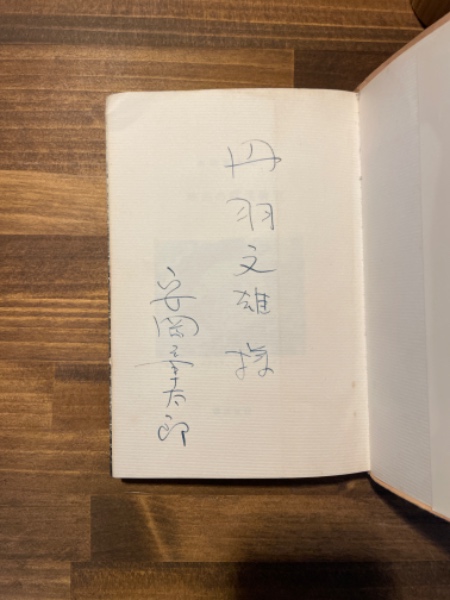 丹羽文雄様
安岡章太郎